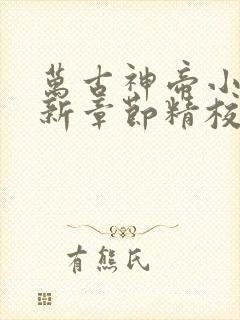 萬古神帝小
新章節精校
有熊氏